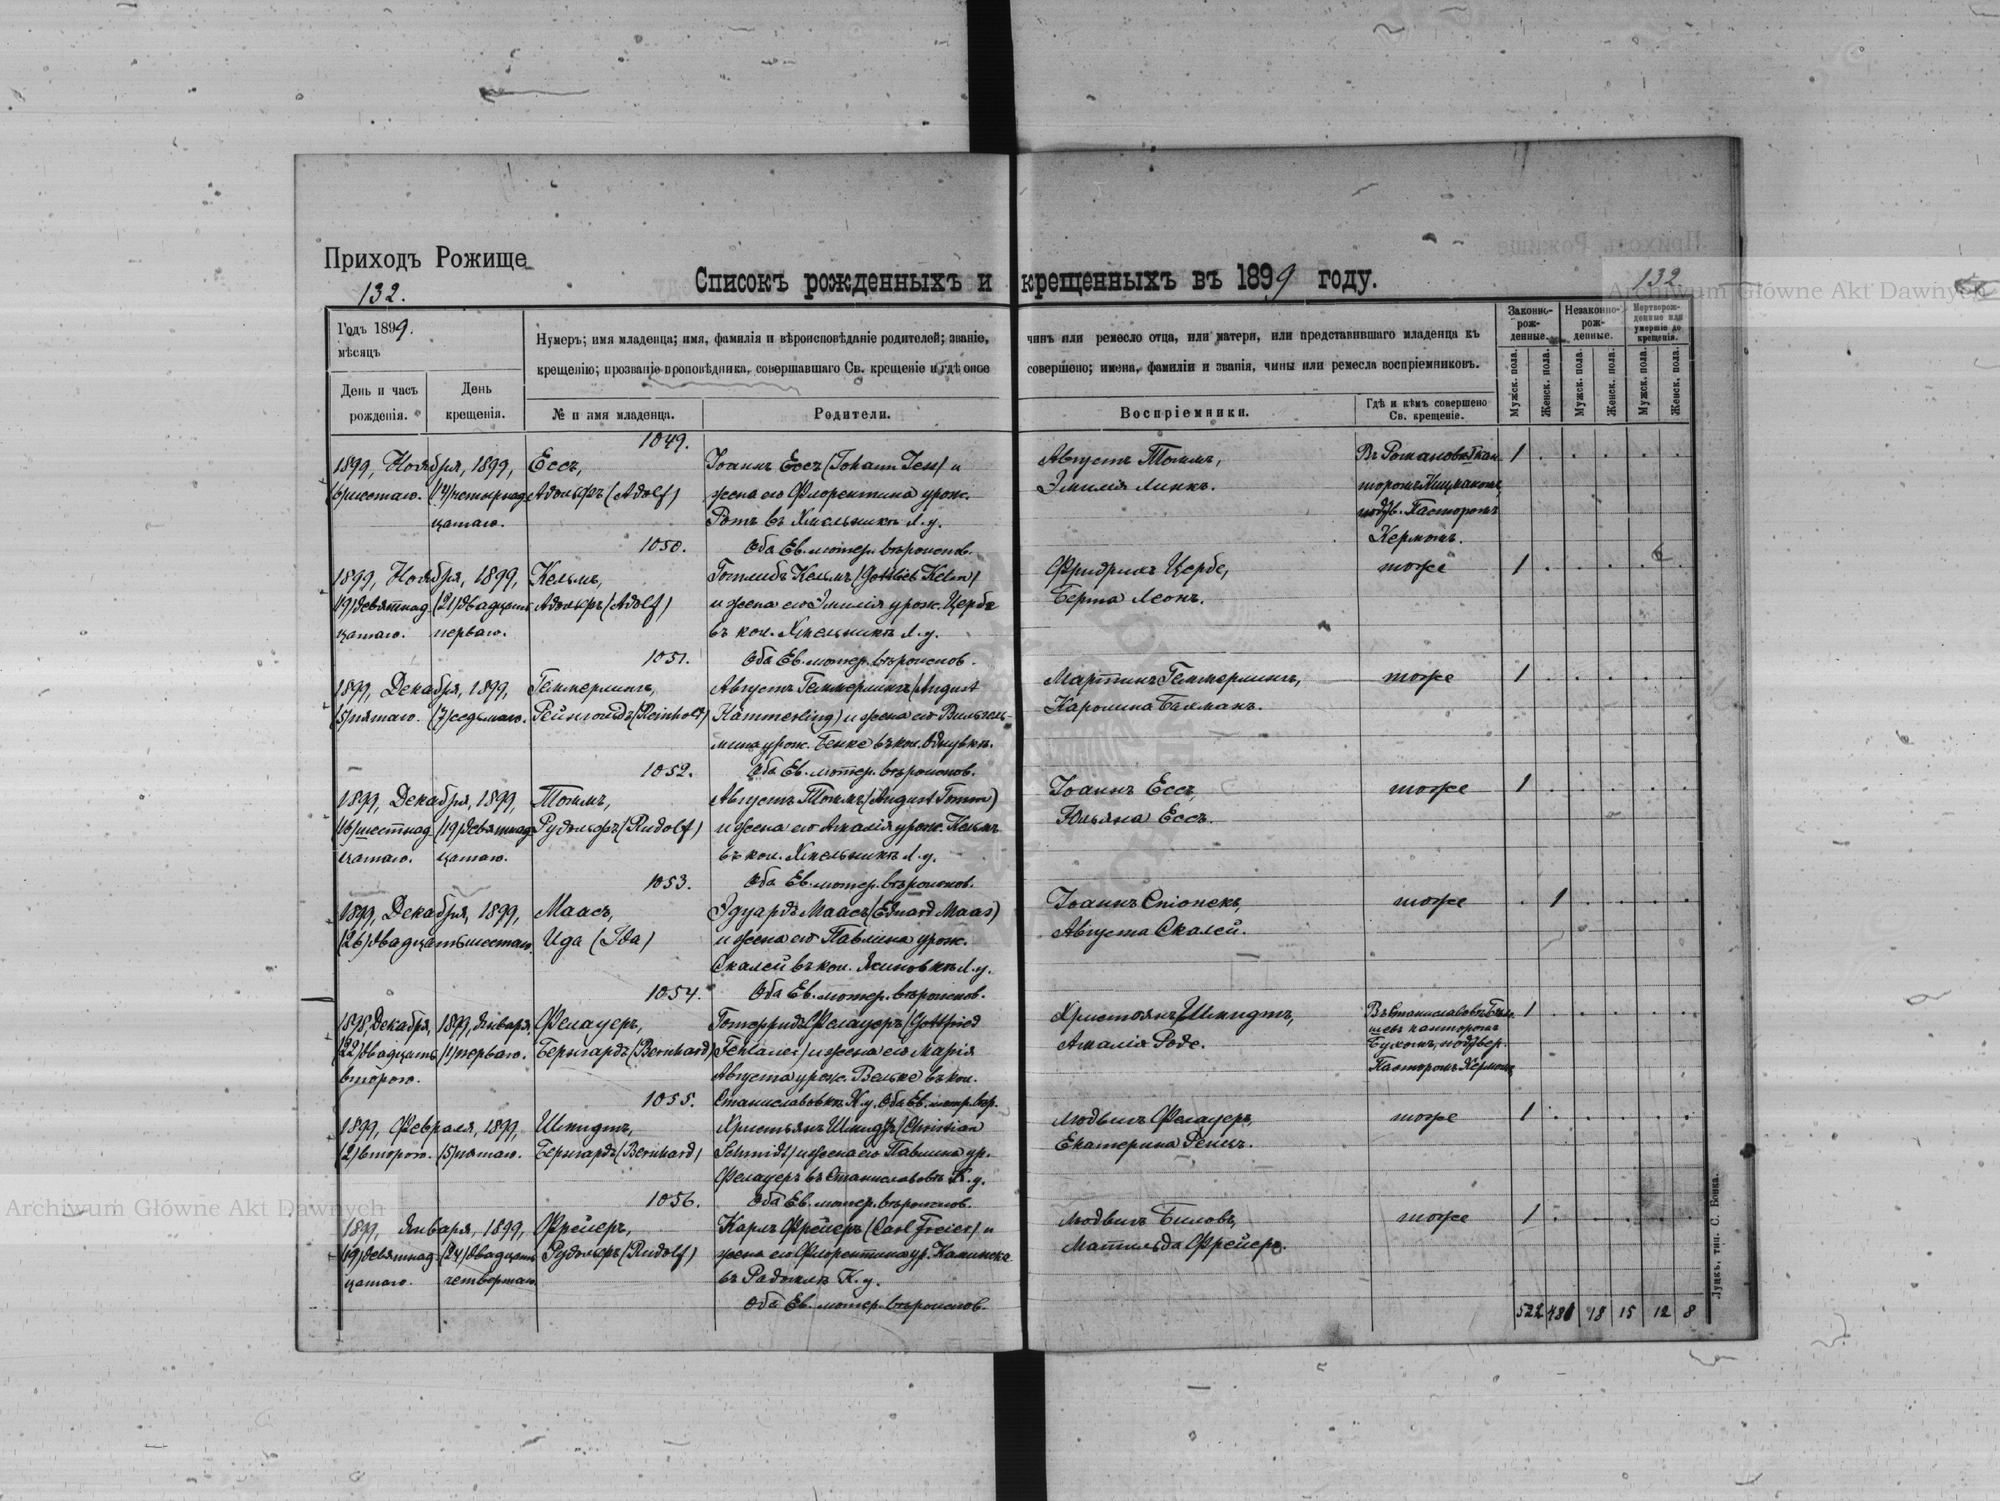 Приходъ Рожище
132.
Списокъ рожденныхъ и крещенныхъ въ 1899 году.
132
Archiwum Główne Akt Dawnych
Годъ 1899.
мѣсяцъ
День и часъ рожденія.
День крещенія.
Нумеръ; имя младенца; имя, фамилія и вѣроисповѣданіе родителей; званіе, чинъ или ремесло отца, или матери, или представившаго младенца къ
крещенію; прозваніе проповѣдника, совершавшаго Св. крещеніе и гдѣ оное совершено; имена, фамиліи и званія, чины или ремесла воспріемниковъ.
№ и имя младенца.
Родители.
Воспріемники.
Гдѣ и кѣмъ совершено Св. крещеніе.
Законно-рож-денные.
Незаконно-рож-денные.
Мертворож-денные или умершіе до крещенія.
Мужск. пола.
Женск. пола.
Мужск. пола.
Женск. пола.
Мужск. пола.
Женск. пола.
1049.
1899, Ноября, 1899, Ессъ, Іоаннъ Ессъ (Johann Jess) и Августъ Томмъ, 1
(6) шестаго. (14) четырнад- Адольфъ (Adolf) жена его Флорентина урож. Эмилія Линкъ.
цатаго. Ротъ въ Хмельникѣ Л. у. подтв. Пасторомъ
1050. Оба Ев. лютер. вѣроиспов. Кермъ.
1899, Ноября, 1899, Кельмъ, Готлибъ Кельмъ (Gottlieb Kelm) Фридрихъ Цербе, тоже 1
(19) девятнад- (21) двадцать Адольфъ (Adolf) и жена его Эмилія урож. Цербе Берта Леонъ.
цатаго. перваго. въ кол. Хмельникѣ Л. у.
1051. Оба Ев. лютер. вѣроиспов.
1899, Декабря, 1899, Геммерлингъ, Августъ Геммерлингъ (August Мартинъ Геммерлингъ, тоже 1
(5) пятаго. (7) седьмаго. Рейнгольдъ (Reinhold) Kämmerling) и жена его Вильгель- Каролина Бахманъ.
мина урож. Бенке въ кол.
1052. Оба Ев. лютер. вѣроиспов.
1899, Декабря, 1899, Томмъ, Августъ Томмъ (August Tomm) Іоаннъ Ессъ, тоже 1
(16) шестнад- (19) девятнад- Рудольфъ (Rudolf) и жена его Амалія урож. Кельмъ Юльяна Ессъ.
цатаго. цатаго. въ кол. Хмельникѣ Л. у.
1053. Оба Ев. лютер. вѣроиспов.
1899, Декабря, 1899, Маасъ, Эдуардъ Маасъ (Eduard Maas) Іоаннъ Спіонекъ, тоже 1
(26) двадцать шестаго. Ида (Ida) и жена его Павлина урож. Августа Скалей.
Скалей въ кол. Яхиновкѣ Л. у.
1054. Оба Ев. лютер. вѣроиспов.
1898, Декабря, 1899, Января, Фелауеръ, Готфридъ Фелауеръ (Gottfried Христіянъ Шмидтъ, 1
(22) двадцать (1) перваго. Бернгардъ (Bernhard) Fehlauer) и жена его Марія Амалія Роде. подтвер.
втораго. Августа урож. Вельке въ кол. Пасторомъ Кермъ
1055. Станиславовкѣ К. у. Оба Ев. лютр. вѣр.
1899, Февраля, 1899, Шмидтъ, Христьянъ Шмидтъ (Christian Людвигъ Фелауеръ, тоже 1
(2) втораго. (5) пятаго. Бернгардъ (Bernhard) Schmidt) и жена его Павлина ур. Екатерина Денцъ.
Фелауеръ въ Станиславовкѣ К. у.
1056. Оба Ев. лютер. вѣроиспов.
1899, Января, 1899, Фрейеръ, Карлъ Фрейеръ (Carl Freier) и Людвигъ Биловъ, тоже 1
(19) девятнад- (24) двадцать Рудольфъ (Rudolf) жена его Флорентина ур. Калинска Матильда Фрейеръ.
цатаго. четвертаго. въ К. у.
Оба Ев. лютер. вѣроиспов.
522 18 15 12 8
Луцкъ, тип. С. Бонка.
Archiwum Główne Akt Dawnych